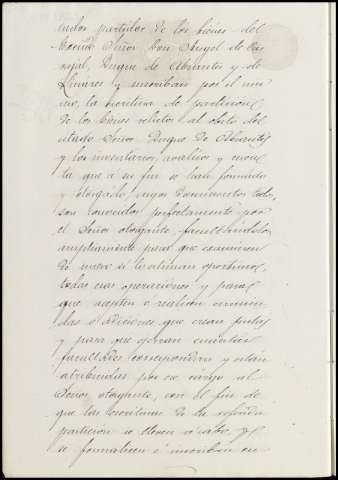 tados partidor de los bienes del
Excmo. Señor Don Angel de Car
vajal, Duque de Abrantes y de
Linares y suscriban por el mis
mo, la escritura de particion
de los bienes relictos al obito del
citado Señor Duque de Abrantes
y los inventarios, avaluos y cuen
ta que a su fin se han formado
y otorgado, cuyos documentos todos
son conocidos perfectamente por
el Señor otorgante, facultandolos
ampliamente para que examinen
de nuevo si lo estiman oportuno,
todas esas operaciones y para
que acepten o realicen enmien
das o adiciones que crean justas
y para que ejerzan cuantas
facultades correspondan y estan
atribuidas por su cargo al
Señor otorgante, con el fin de
que las escrituras de la referida
particion se eleven a cabo, y
se formalicen e inscriban en